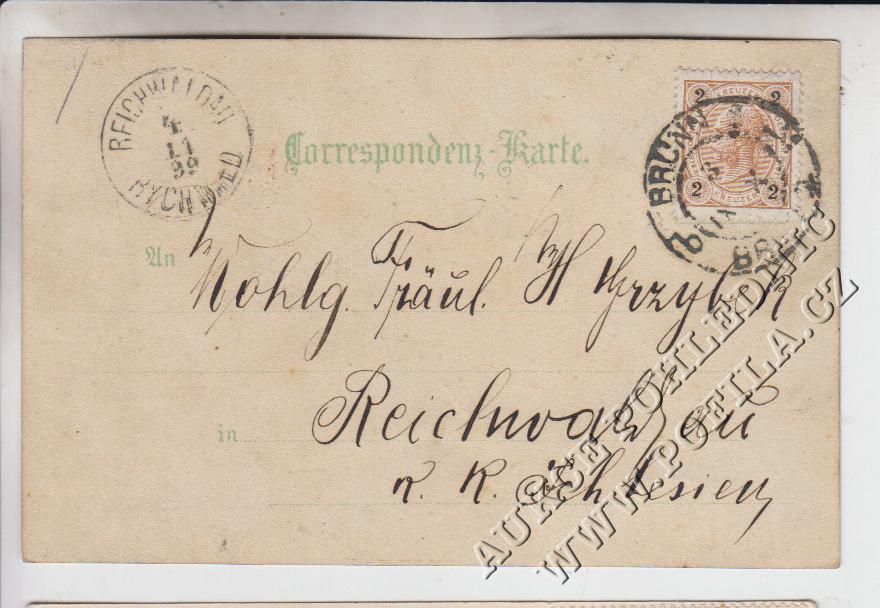 REICHWALDAU
4
11
99
RYCHWALD
Correspondenz-Karte.
2 KREUZER 2
2 KREUZER 2
BRÜNN
An
Wohlg. Fräul. M Grzybek
in
Reichwaldau
k. k. Schlesien
AUKCE POHLEDNIC
WWW.POFTILA.CZ